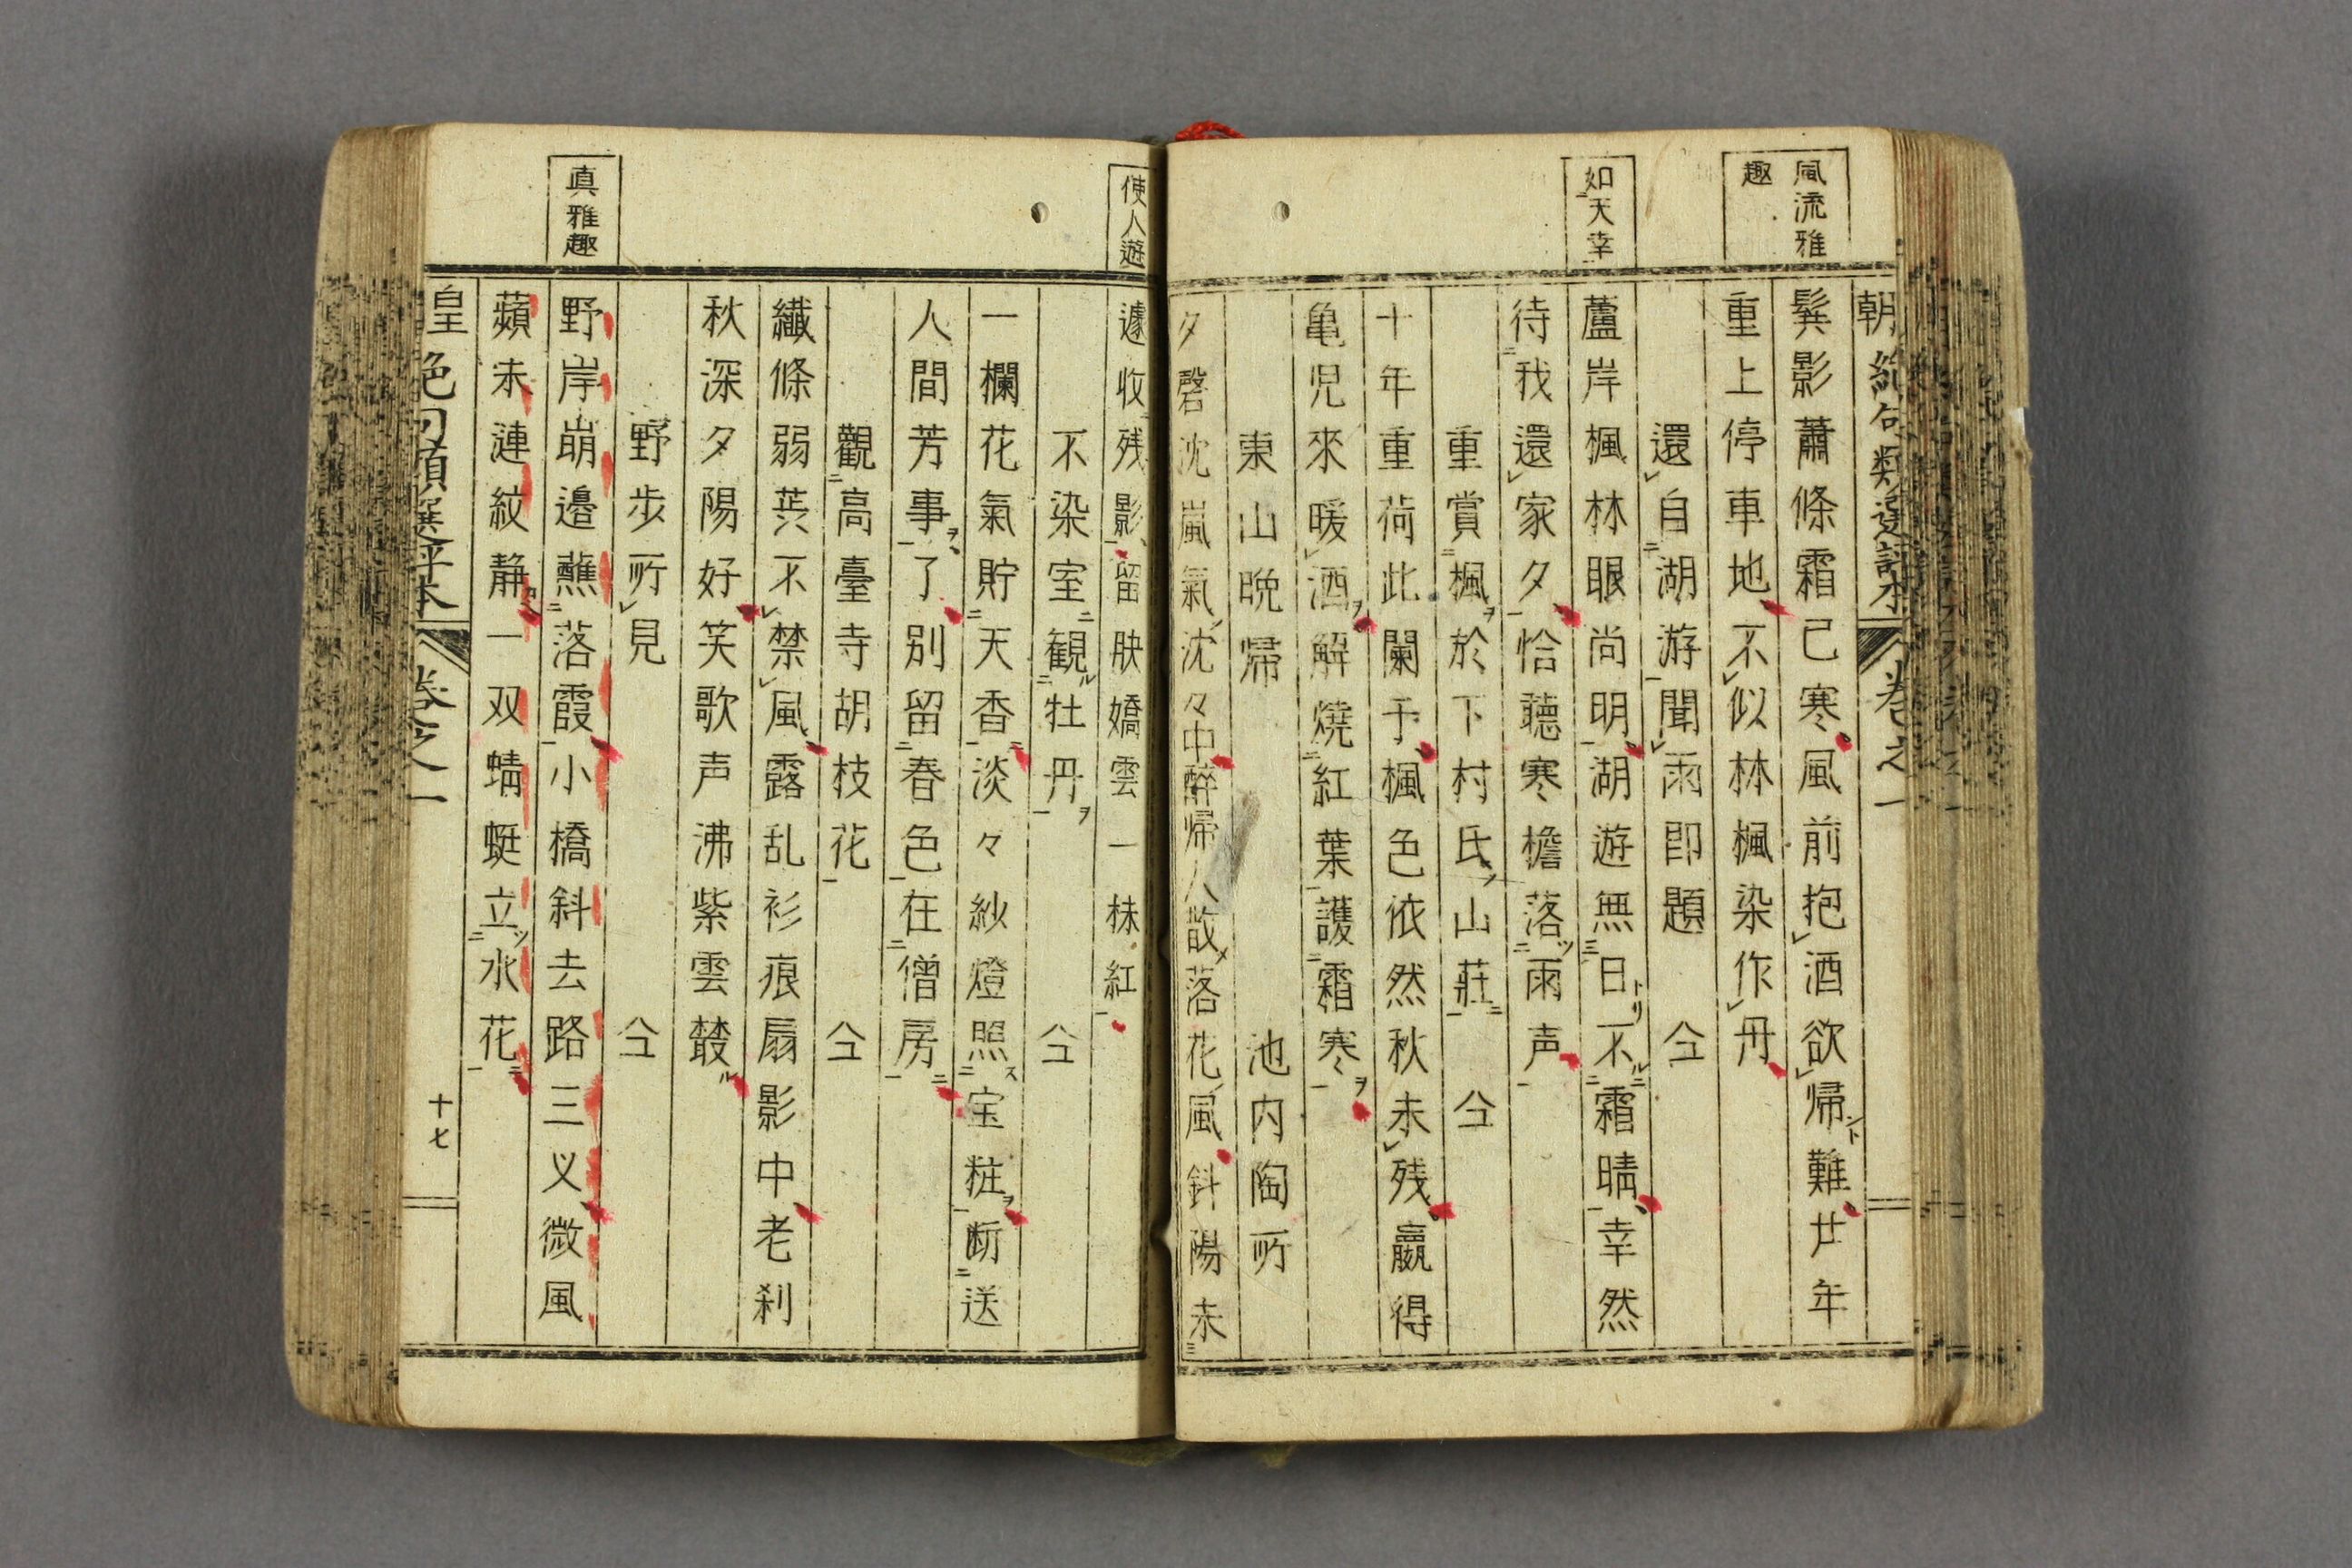 風流雅
趣
如天幸
朝絶句類選評本 卷之一
鬓影蕭條霜已寒風前抱酒欲歸難廿年
重上停車地不似林楓染作丹
還自湖游聞雨即題 仝
蘆岸楓林眼尚明湖遊無日不霜晴幸然
待我還家夕恰聽寒檐落雨声
重賞楓於下村氏山莊 仝
十年重荷此闌干楓色依然秋未残贏得
亀児來暖酒解燒紅葉護霜寒
東山晩帰 池内陶所
夕磬沈嵐氣沈々中醉帰人散落花風斜陽未
使人遊
真雅趣
遽收残影留肤嬌雲一株紅
不染室観牡丹 仝
一欄花氣貯天香淡々紗燈照宝粧断送
人間芳事了別留春色在僧房
觀高臺寺胡枝花 仝
纎條弱蕊不禁風露乱衫痕扇影中老刹
秋深夕陽好笑歌声沸紫雲叢
野歩所見 仝
野岸崩邉蘸落霞小橋斜去路三义微風
蘋末漣紋静一双蜻蜓立水花
皇 絶句類選評本 卷之一 十七